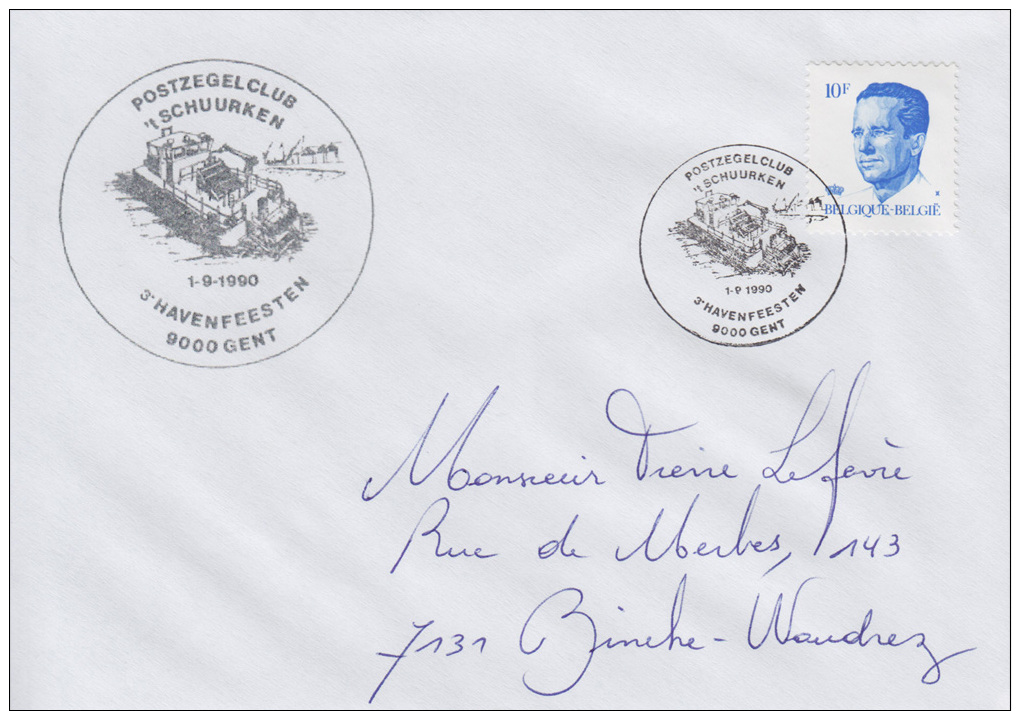 POSTZEGELCLUB
't SCHUURKEN
1-9-1990
3e HAVENFEESTEN
9000 GENT
POSTZEGELCLUB
't SCHUURKEN
1-9 1990
3e HAVENFEESTEN
9000 GENT
10F
BELGIQUE-BELGIË
Monsieur Pierre Lefèvre
Rue de Merbes, 143
7131 Binche-Waudrez